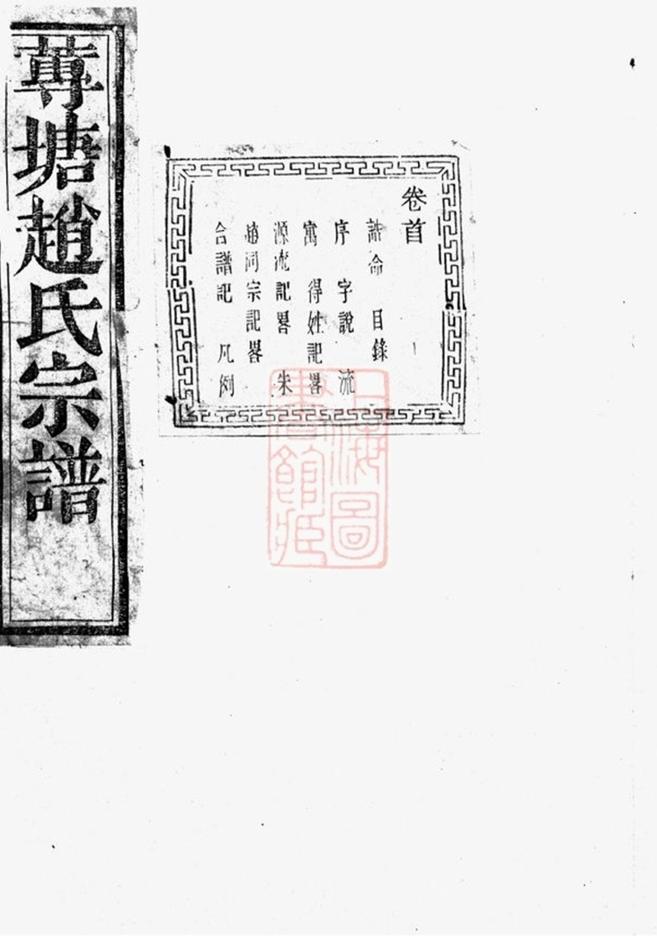 卷首
誥命　目錄
序　字說　流
寓　得姓記畧
源流記畧　朱
趙同宗記畧
合譜記　凡例
蓴塘趙氏宗譜
上海圖書館藏